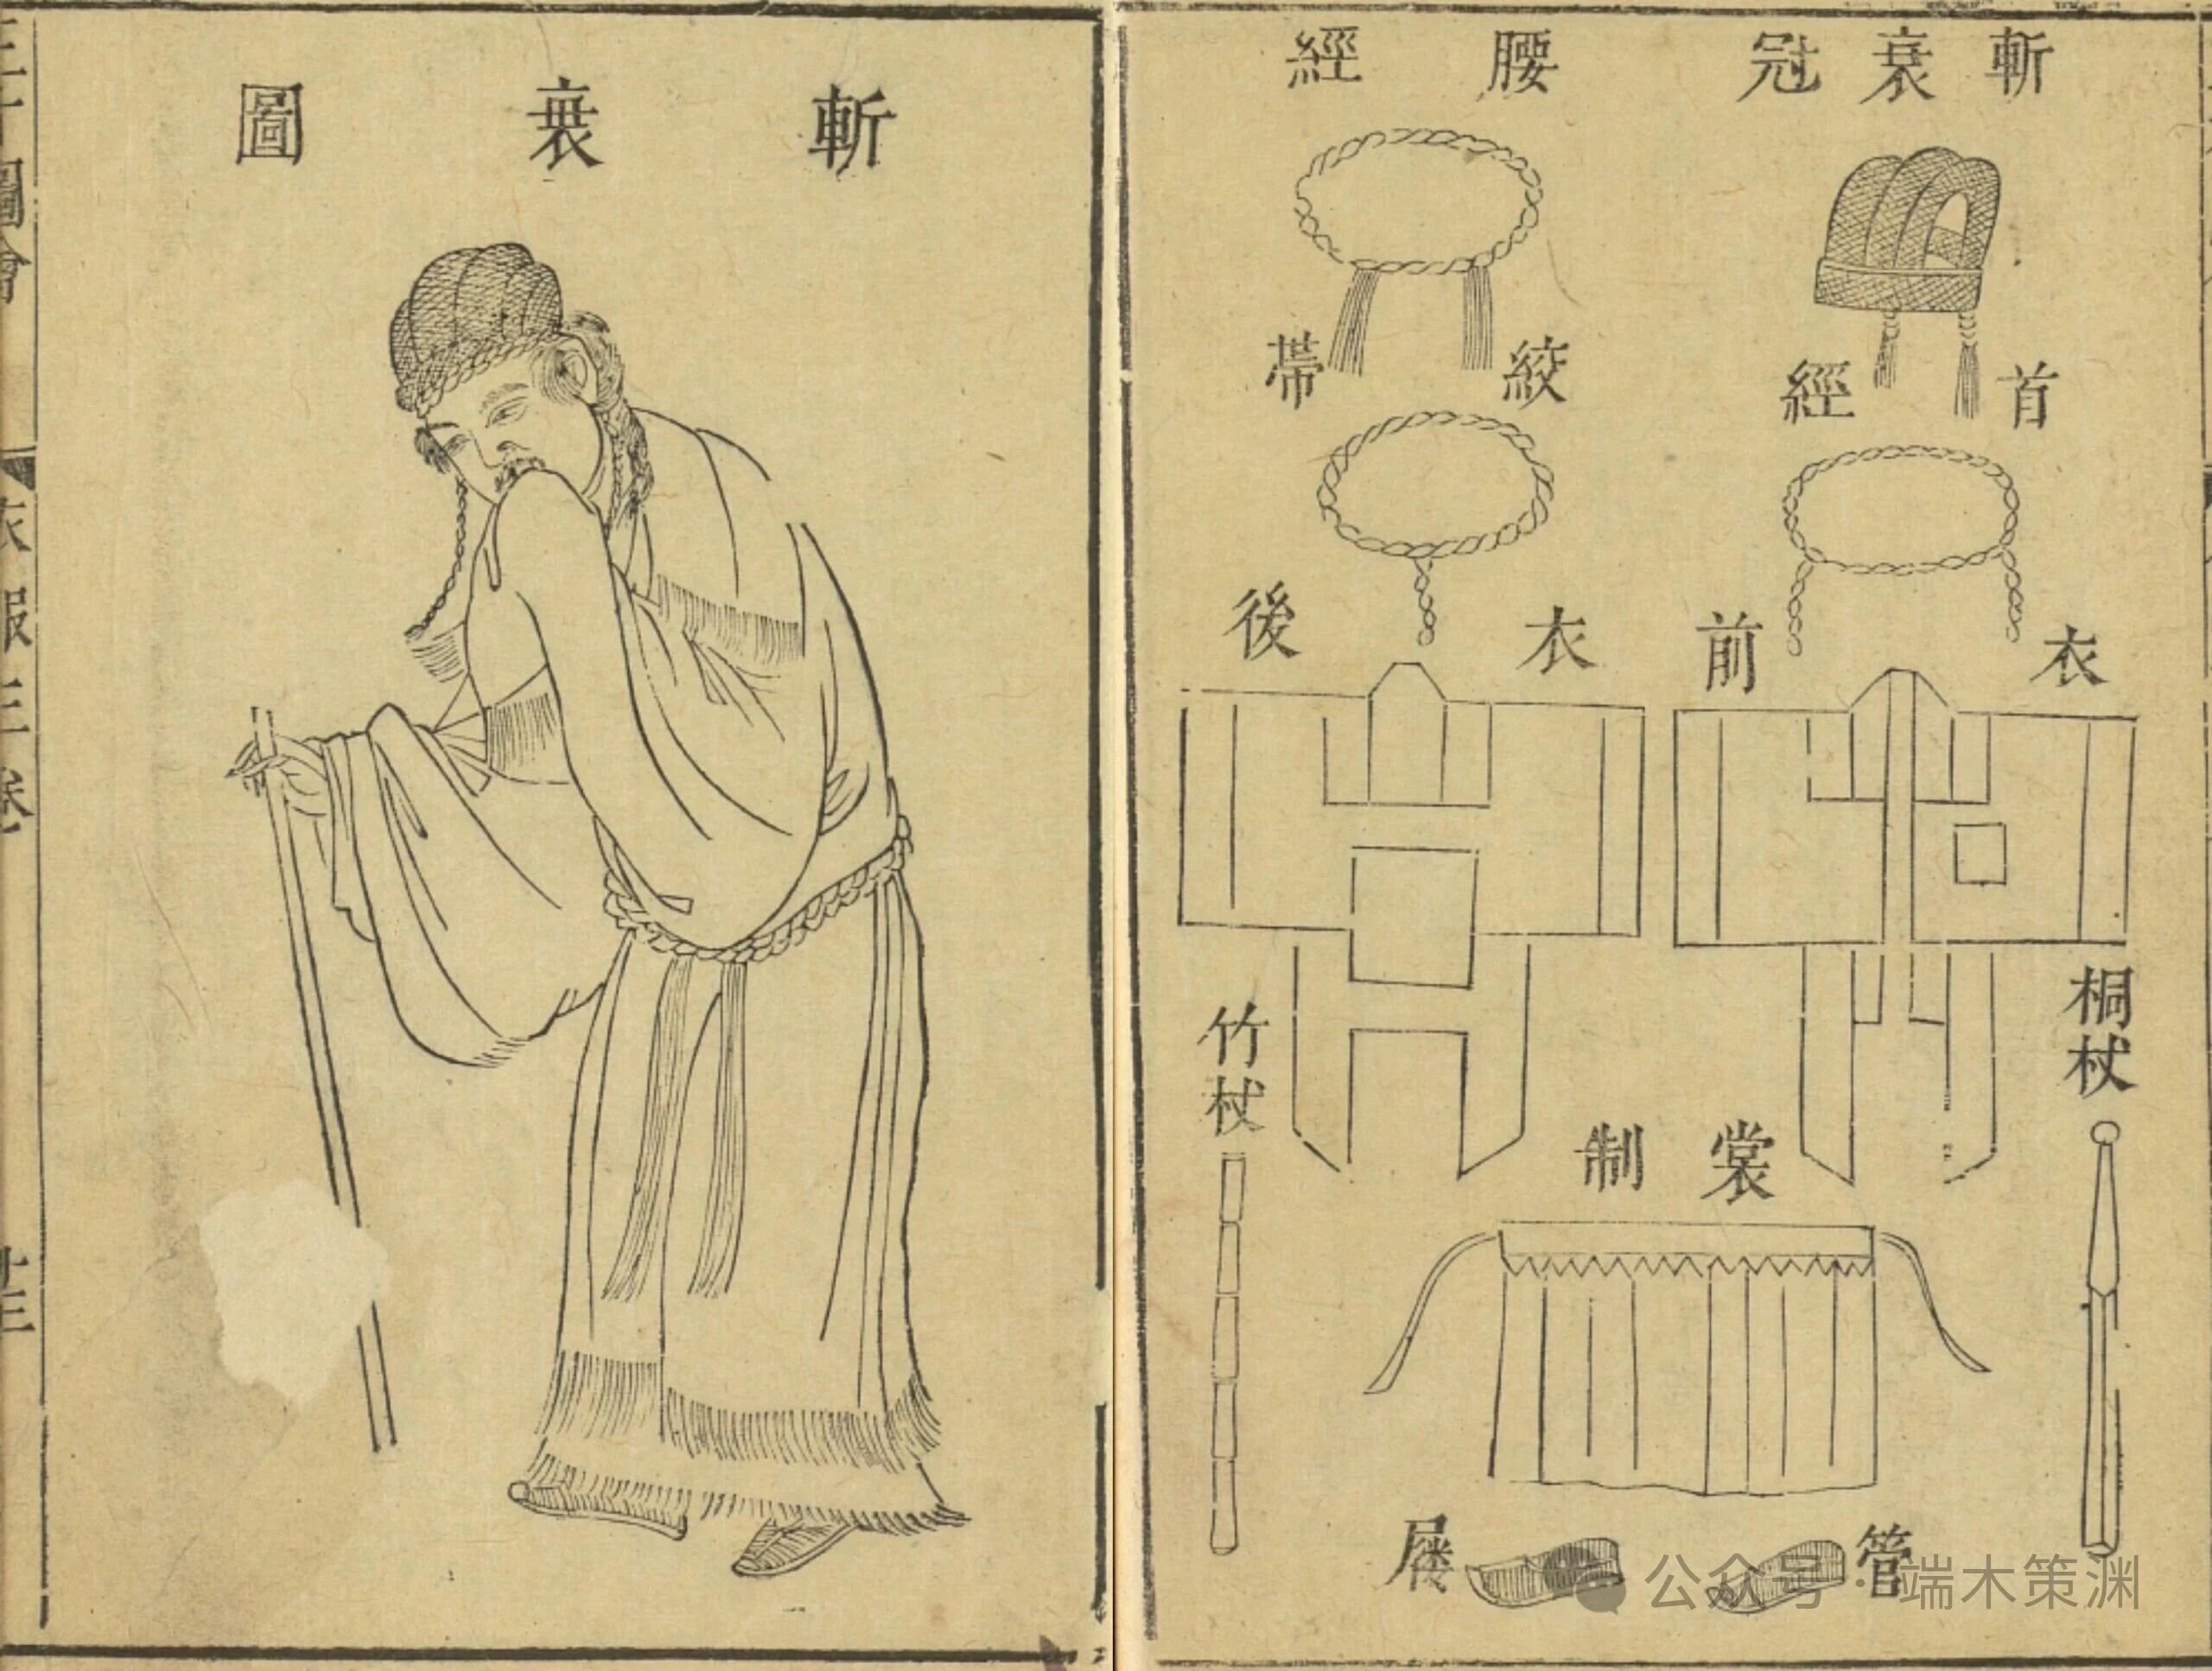 斬衰冠
腰經
首經
絞帶
衣前
衣後
桐杖
竹杖
裳制
管屨
斬衰圖
三才圖會
衣服三卷
公众号·端木策渊